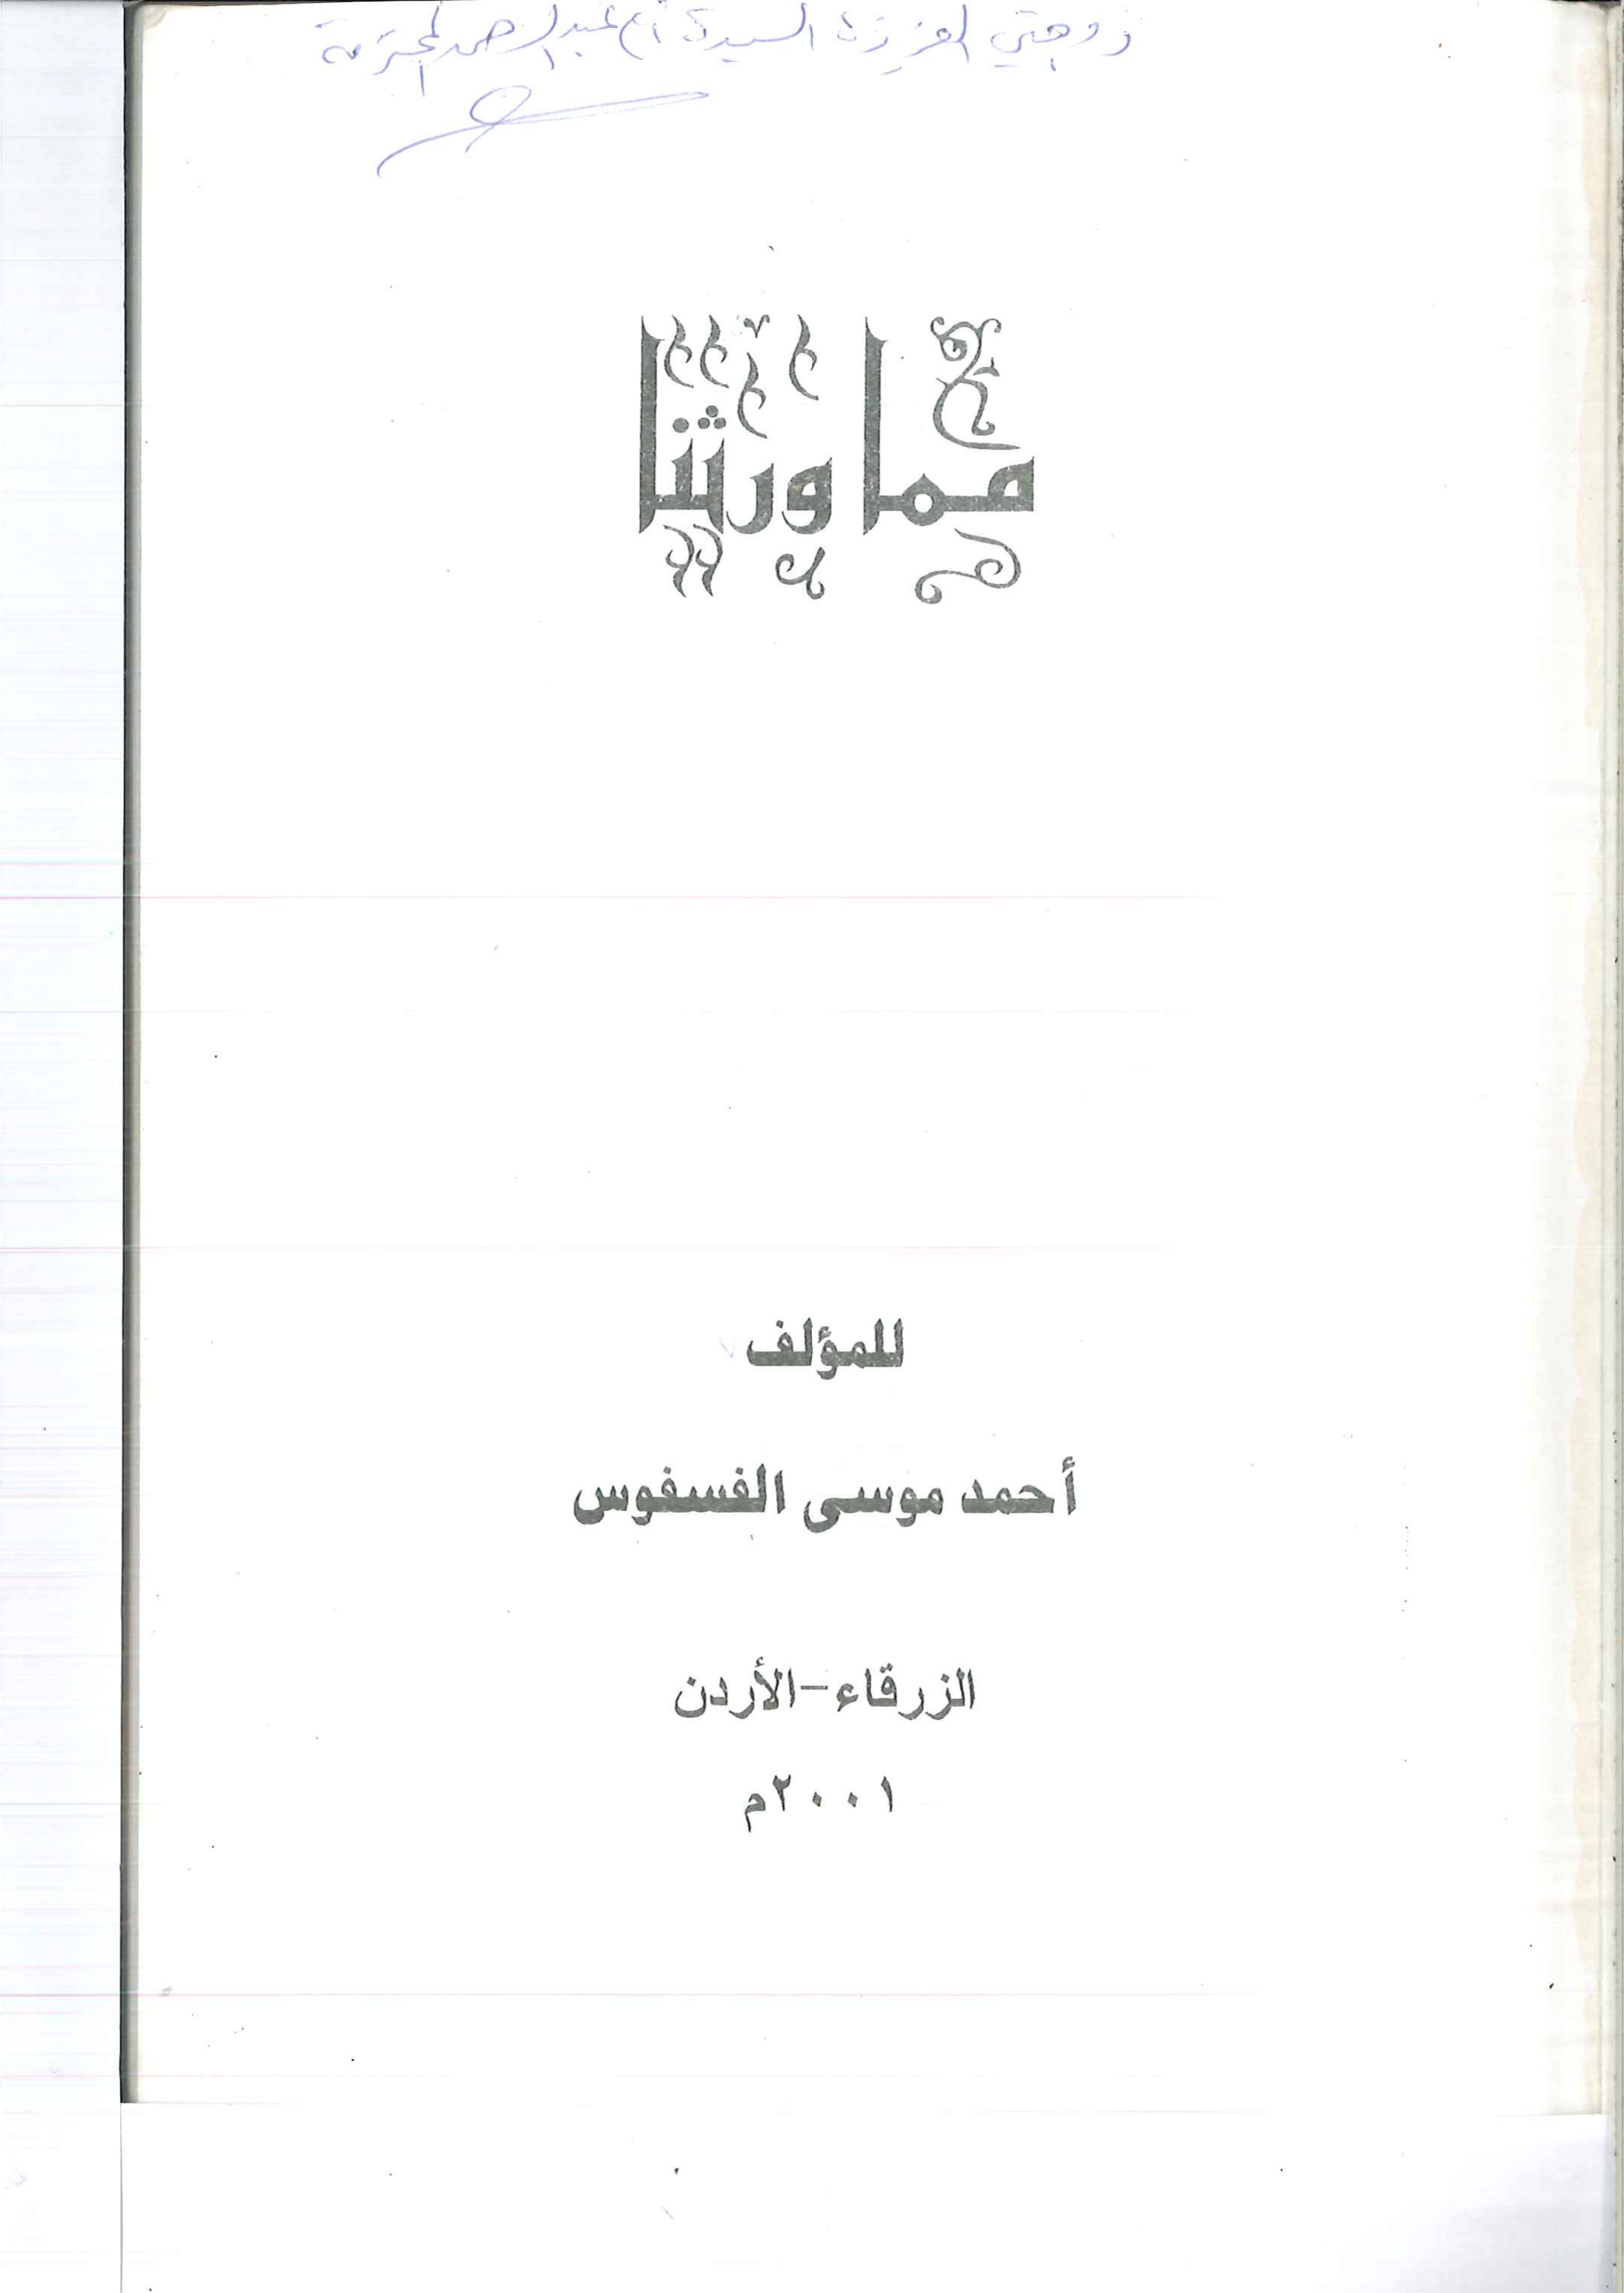 زوجتي العزيزة السيدة أم عبد الرحمن المحترمة
مما ورثنا
للمؤلف
أحمد موسى الفسفوس
الزرقاء-الأردن
٢٠٠١م